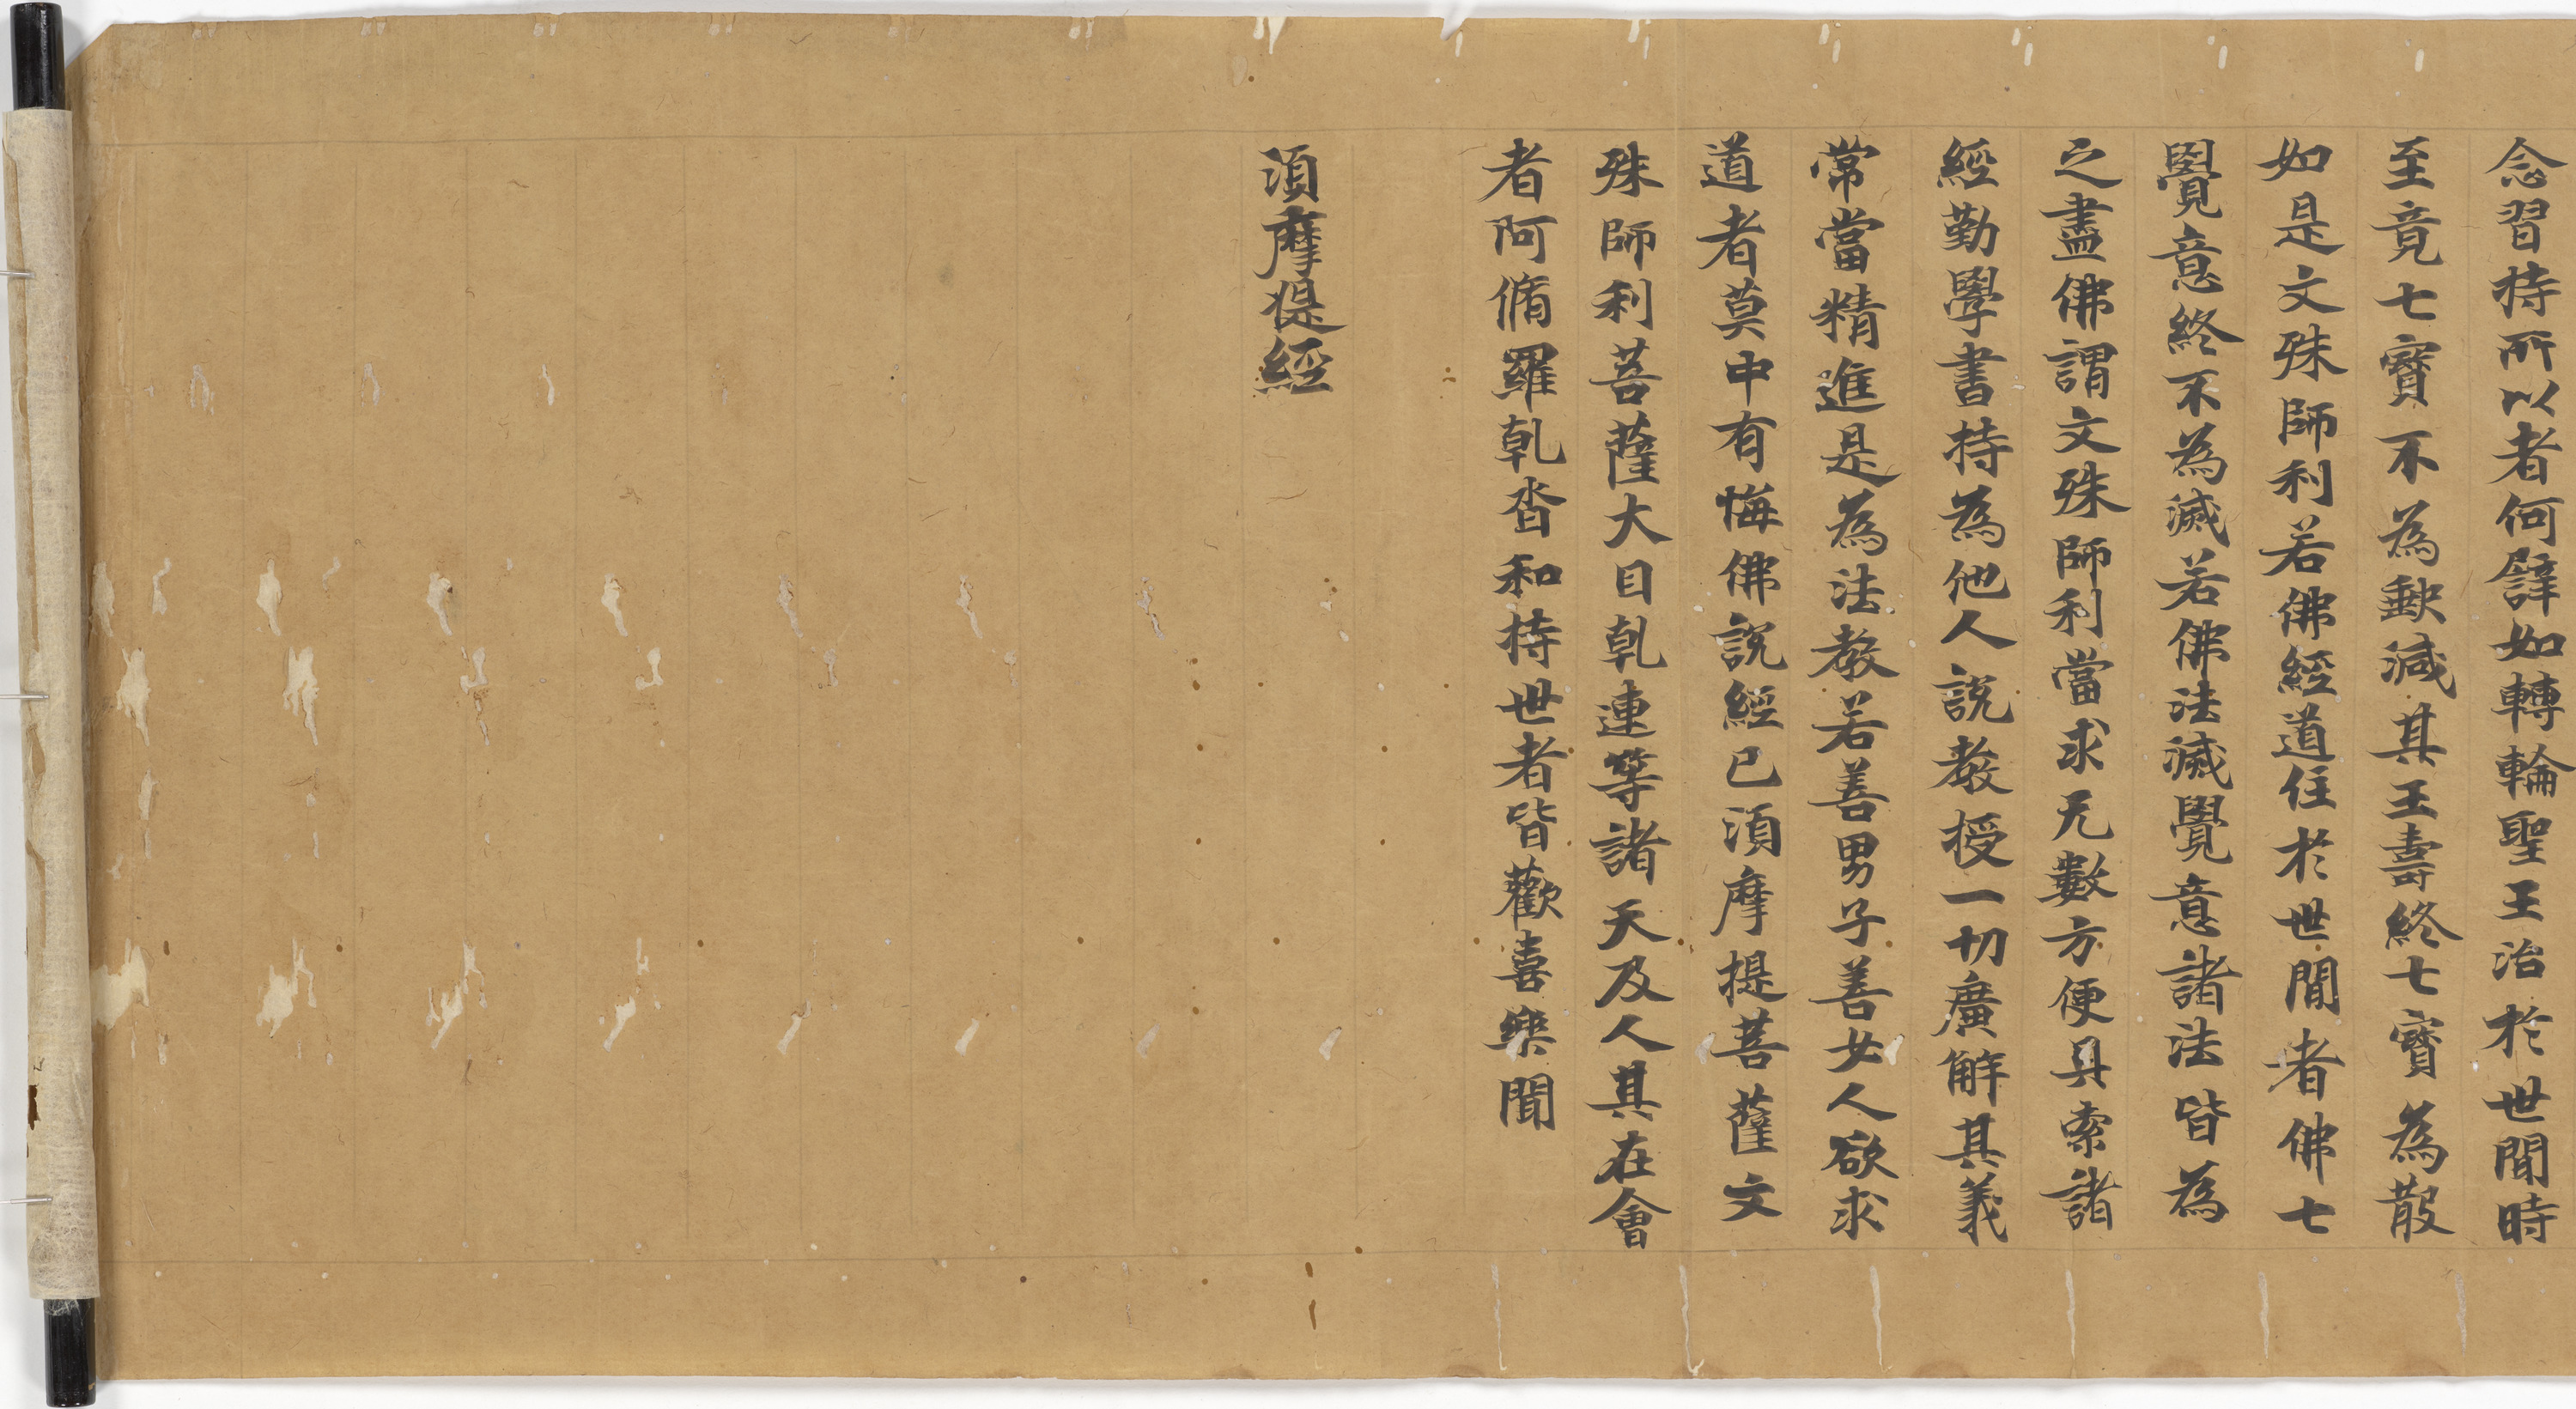 念習持所以者何譬如轉輪聖王治於世間時
至竟七寳不為缺減其王壽終七寳為散
如是文殊師利若佛經道住於世間者佛七
覺意終不為滅若佛法滅覺意諸法皆為
之盡佛謂文殊師利當求无數方便具索諸
經勤學書持為他人説教授一切廣解其義
常當精進是為法教若善男子善女人欲求
道者莫中有悔佛説經已須摩提菩薩文
殊師利菩薩大目乹連等諸天及人其在會
者阿脩羅乹沓和持世者皆歡喜樂聞
須摩提經